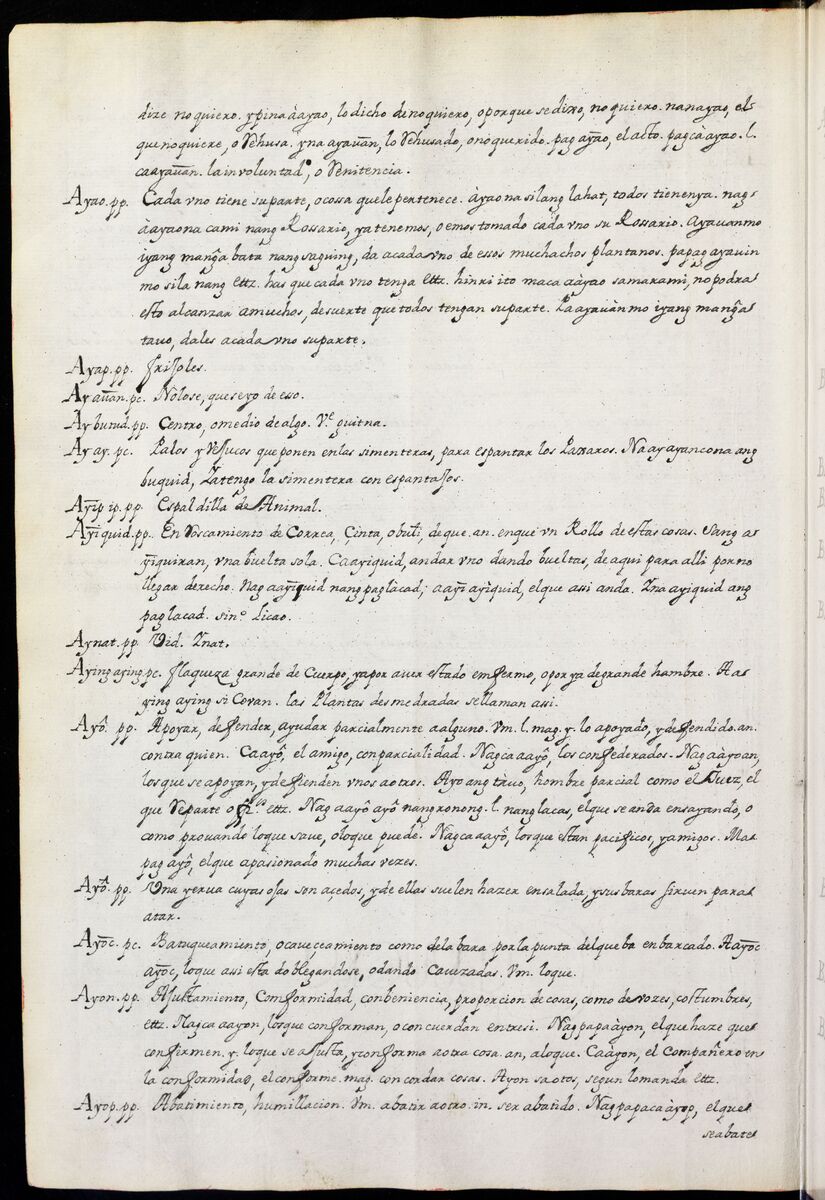 dize no quiero. y pina àayao, lo dicho de no quiero, o porque se dixo, no quiero. nanayao, el
que no quiere, o rehusa. yna ayauan, lo rehusado, o no querido. pag ayao, el acto. pagcà ayao. l.
caayauan. la involuntad,
Ayao. pp. Cada vno tiene su parte, o cossa que le pertenece. àyao na silang lahat, todos tienen ya. nag
àayao na cami nang Rossario, ya tenemos, o emos tomado cada vno su Rossario. Ayauan mo
iyang manga bata nang saguing, da a cada vno de essos muchachos plantanos. papag ayauin
mo sila nang ettz. has que cada vno tenga ettz. hindi ito maca aàyao sa marami, no podra
esto alcanzar a muchos, de suerte que todos tengan su parte. Pa ayauàn mo iyang manga
tauo, dales a cada vno su parte.
Ayap. pp. frisoles.
Ayauan. pc. Nolose, que se yo de eso.
Aybutud. pp. Centro, o medio de algo. Ve. guitna.
Ayay. pc. Palos y Vejucos que ponen en las simenteras, para espantar los Paxaros. Na ayayan co na ang
buquid, Ya tengo la simentera con espantajos.
Ayip ip. pp. Espaldilla de Animal.
Ayiquid. pp. Enroscamiento de Correa, Çinta, o buli, de que. an. en que vn Rollo de estas cosas. Sang a
yiquiran, vna buelta sola. Caayiquid, andar vno dando bueltas, de aqui para alli por no
llegar derecho. Nag aayiquid nang paglacad; aayi ayiquid, el que assi anda. Yna ayiquid ang
paglacad. sino. Licao.
Aynat. pp. Vid. Ynat.
Aying aying. pc. flaqueza grande de Cuerpo, ya por auer estado enfermo, o por ya de grande hambre. Aa
ying aying si Covan. las Plantas desmedradas se llaman assi.
Ayô. pp. Apoyar, defender, ayudar parcialmente a alguno. Vm. l. mag. y. lo apoyado, y defendido. an.
contra quien. Caayô, el amigo, con parcialidad. Nagca aayô, los confederados. Nag aàyoan,
los que se apoyan, y defienden vnos a otros. Ayo ang tàuo, hombre parcial como el Juez, el
que reparte o ettz. Nag aayô ayô nang ronong. l. nang lacas, el que se anda ensayando, o
como prouando lo que saue, o lo que puede. Nagca aayô, los que estan pacificos, y amigos. Ma
pag ayô, el que apasionado muchas vezes.
Ayô. pp. Vna yerua cuyas ojas son açedos, y de ellas suelen hazer ensalada, y sus baras siruen para
atar.
Ayoc. pc. Batuqueamiento, o caueçeamiento como de la bara por la punta del que ba enbarcado. Aayoc
ayoc, lo que assi esta doblegandose, o dando cauezadas. Vm. lo que.
Ayon. pp. Ajustamiento, Conformidad, conbeniencia, proporcion de cosas, como de vozes, costumbres,
ettz. Nagca aayon, los que conforman, o concuerdan entresi. Nagpapaàyon, el que haze que
confirmen. y. lo que se ajusta, y conforma a otra cosa. an, a lo que. Caàyon, el Compañero en
la conformidad, el conforme. mag. concordar cosas. Ayon sa otos, segun lo manda ettz.
Ayop. pp. Abatimiento, humillacion. Vm. abatir a otro. in. ser abatido. Nagpapaca àyop, el que
se abate